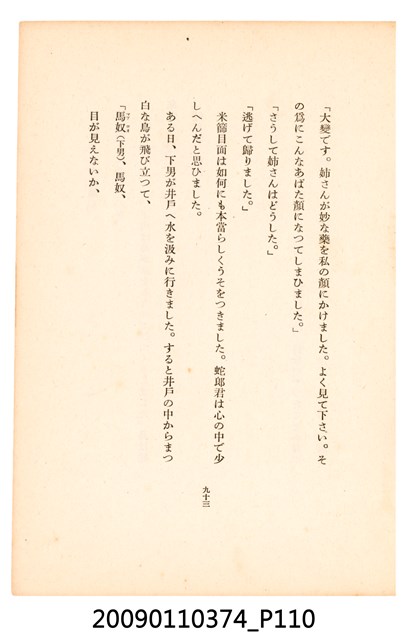 「大變です。姉さんが妙な藥を私の顏にかけました。よく見て下さい。そ
の爲にこんなあばた顏になつてしまひました。」
「さうして姉さんはどうした。」
「逃げて歸りました。」
米篩目面は如何にも本當らしくうそをつきました。蛇郎君は心の中で少
しへんだと思ひました。
ある日、下男が井戸へ水を汲みに行きました。すると井戸の中からまつ
白な鳥が飛び立つて、
「馬奴（下男）、馬奴、
目が見えないか、
九十三
20090110374_P110